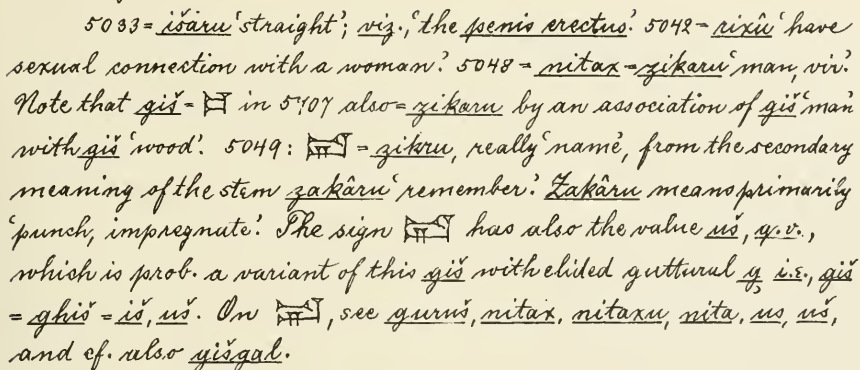 5033 = išâru 'straight'; viz., 'the penis erectus'. 5042 = rixû 'have
sexual connection with a woman'. 5048 = nitax = zikaru 'man, vir'.
Note that giš = 𒄑 in 5707 also = zikaru by an association of giš 'man'
with giš 'wood'. 5049: 𒍑 = zikru, really 'name', from the secondary
meaning of the stem zakâru 'remember'. Zakâru means primarily
'punch, impregnate'. The sign 𒍑 has also the value uš, q.v.,
which is prob. a variant of this giš with elided guttural g, i.e., giš
= ghiš = iš, uš. On 𒍑, see guruš, nitax, nitaxu, nita, us, uš,
and cf. also gišgal.